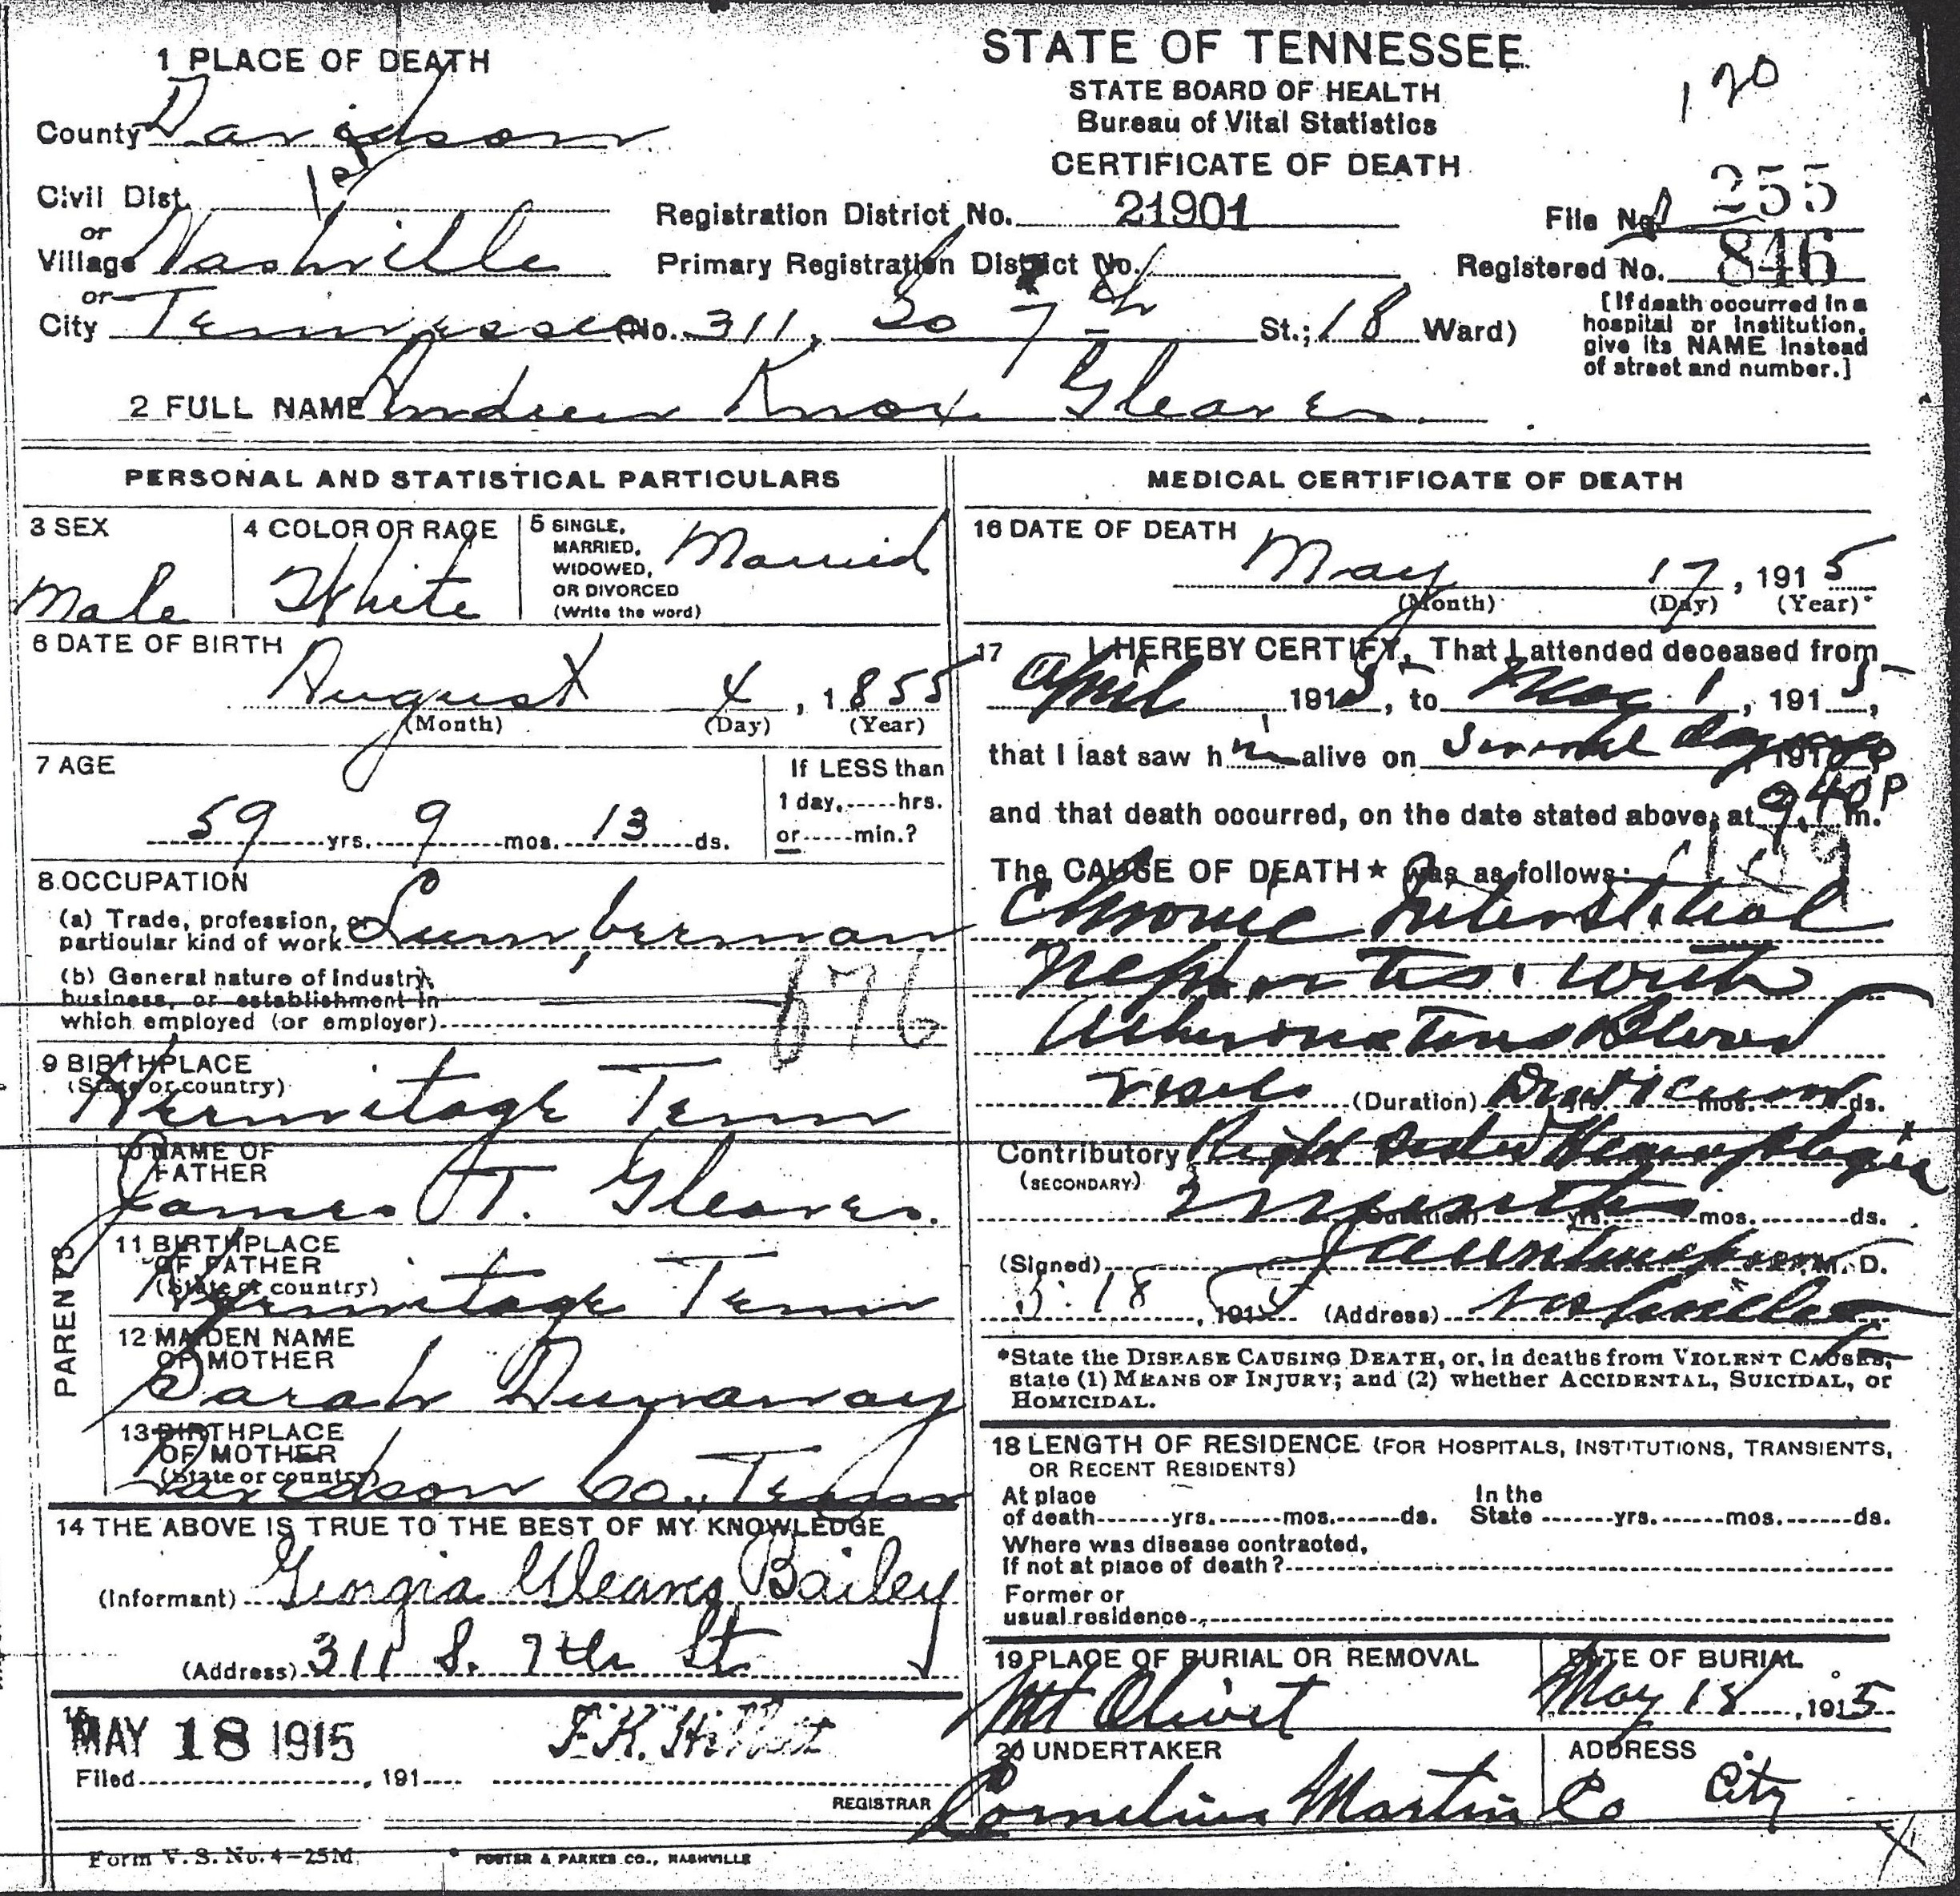 1 PLACE OF DEATH
County Davidson
Civil Dist. 18
or
Village Nashville
or
City Tennessee (No. 311, So 7th St.; 18 Ward)
STATE OF TENNESSEE
STATE BOARD OF HEALTH
Bureau of Vital Statistics
CERTIFICATE OF DEATH
120
Registration District No. 21901
File No. 255
Primary Registration District No.
Registered No. 846
[If death occurred in a
hospital or institution,
give its NAME instead
of street and number.]
2 FULL NAME Andrew Knox Gleaves
PERSONAL AND STATISTICAL PARTICULARS
3 SEX
Male
4 COLOR OR RACE
White
5 SINGLE,
MARRIED,
WIDOWED,
OR DIVORCED
(Write the word)
Married
6 DATE OF BIRTH
August 4, 1855
(Month) (Day) (Year)
7 AGE
59 yrs. 9 mos. 13 ds.
If LESS than
1 day, hrs.
or min.?
8 OCCUPATION
(a) Trade, profession, or
particular kind of work Lumberman
(b) General nature of industry,
business, or establishment in
which employed (or employer)
676
9 BIRTHPLACE
(State or country)
Hermitage Tenn
PARENTS
10 NAME OF
FATHER
James T. Gleaves.
11 BIRTHPLACE
OF FATHER
(State or country)
Hermitage Tenn
12 MAIDEN NAME
OF MOTHER
Sarah Dunaway
13 BIRTHPLACE
OF MOTHER
(State or country)
Davidson Co., Tenn
14 THE ABOVE IS TRUE TO THE BEST OF MY KNOWLEDGE
(Informant) Georgia Gleaves Bailey
(Address) 311 S. 7th St
15
MAY 18 1915
Filed , 191
REGISTRAR
Form V. S. No. 4-25M
FOSTER & PARKES CO., NASHVILLE
MEDICAL CERTIFICATE OF DEATH
16 DATE OF DEATH
May 17, 1915
(Month) (Day) (Year)
17 I HEREBY CERTIFY, That I attended deceased from
April 1915, to May 1, 1915,
that I last saw him alive on several days ago 191
and that death occurred, on the date stated above, at 9.40 P m.
The CAUSE OF DEATH* was as follows:
Chronic Interstitial
Nephritis with
Atheromatous Blood
Vessels (Duration) yrs. mos. ds.
Contributory Right Sided Hemiplegia
(SECONDARY)
2 months (Duration) yrs. mos. ds.
(Signed) M. D.
5-18, 1915 (Address) Nashville
*State the DISEASE CAUSING DEATH, or, in deaths from VIOLENT CAUSES,
state (1) MEANS OF INJURY; and (2) whether ACCIDENTAL, SUICIDAL, or
HOMICIDAL.
18 LENGTH OF RESIDENCE (FOR HOSPITALS, INSTITUTIONS, TRANSIENTS,
OR RECENT RESIDENTS)
At place
of death yrs. mos. ds.
In the
State yrs. mos. ds.
Where was disease contracted,
if not at place of death?
Former or
usual residence
19 PLACE OF BURIAL OR REMOVAL
Mt Olivet
DATE OF BURIAL
May 18, 1915
20 UNDERTAKER
Cornelius Martin Co
ADDRESS
City
X